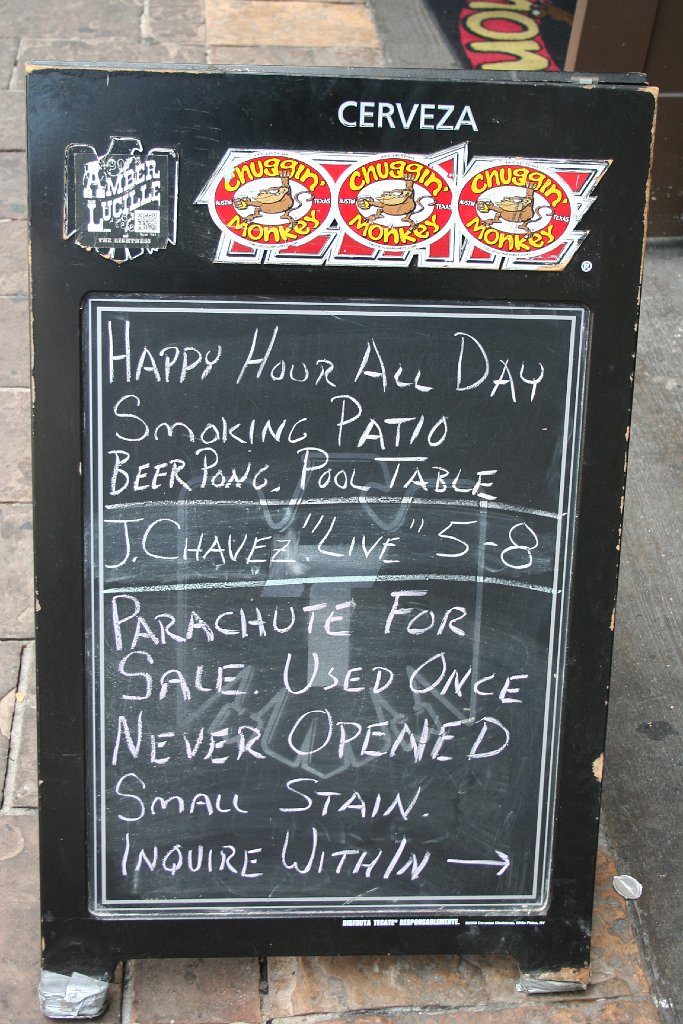 mon
CERVEZA
AMBER
LUCILLE
THE LIGHTNESS
Chuggin' Chuggin' Chuggin'
AUSTIN TEXAS AUSTIN TEXAS AUSTIN TEXAS
Monkey Monkey Monkey
®
HAPPY HOUR ALL DAY
SMOKING PATIO
BEER PONG. POOL TABLE
J. CHAVEZ "LIVE" 5-8
PARACHUTE FOR
SALE. USED ONCE
NEVER OPENED
SMALL STAIN.
INQUIRE WITHIN →
DISFRUTA TECATE® RESPONSABLEMENTE.